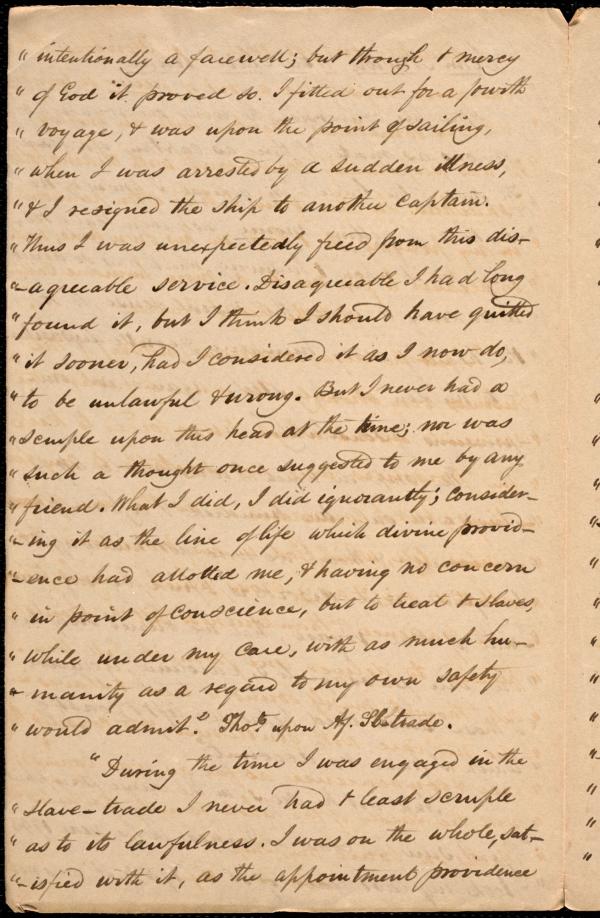 " intentionally a farewell; but through t mercy
" of God it proved so. I fitted out for a fourth
" voyage, & was upon the point of sailing,
" when I was arrested by a sudden illness,
" & I resigned the ship to another captain.
" Thus I was unexpectedly freed from this dis-
"-agreeable service. Disagreeable I had long
" found it, but I think I should have quitted
" it sooner, had I considered it as I now do,
" to be unlawful & wrong. But I never had a
" scruple upon this head at the time; nor was
" such a thought once suggested to me by any
" friend. What I did, I did ignorantly; consider-
"-ing it as the line of life which divine provid-
"-ence had allotted me, & having no concern
" in point of conscience, but to treat t slaves,
" while under my care, with as much hu-
"-manity as a regard to my own safety
" would admit." Thots upon Af. Sl-trade.
" During the time I was engaged in the
" slave-trade I never had t least scruple
" as to its lawfulness. I was on the whole, sat-
"-isfied with it, as the appointment providence